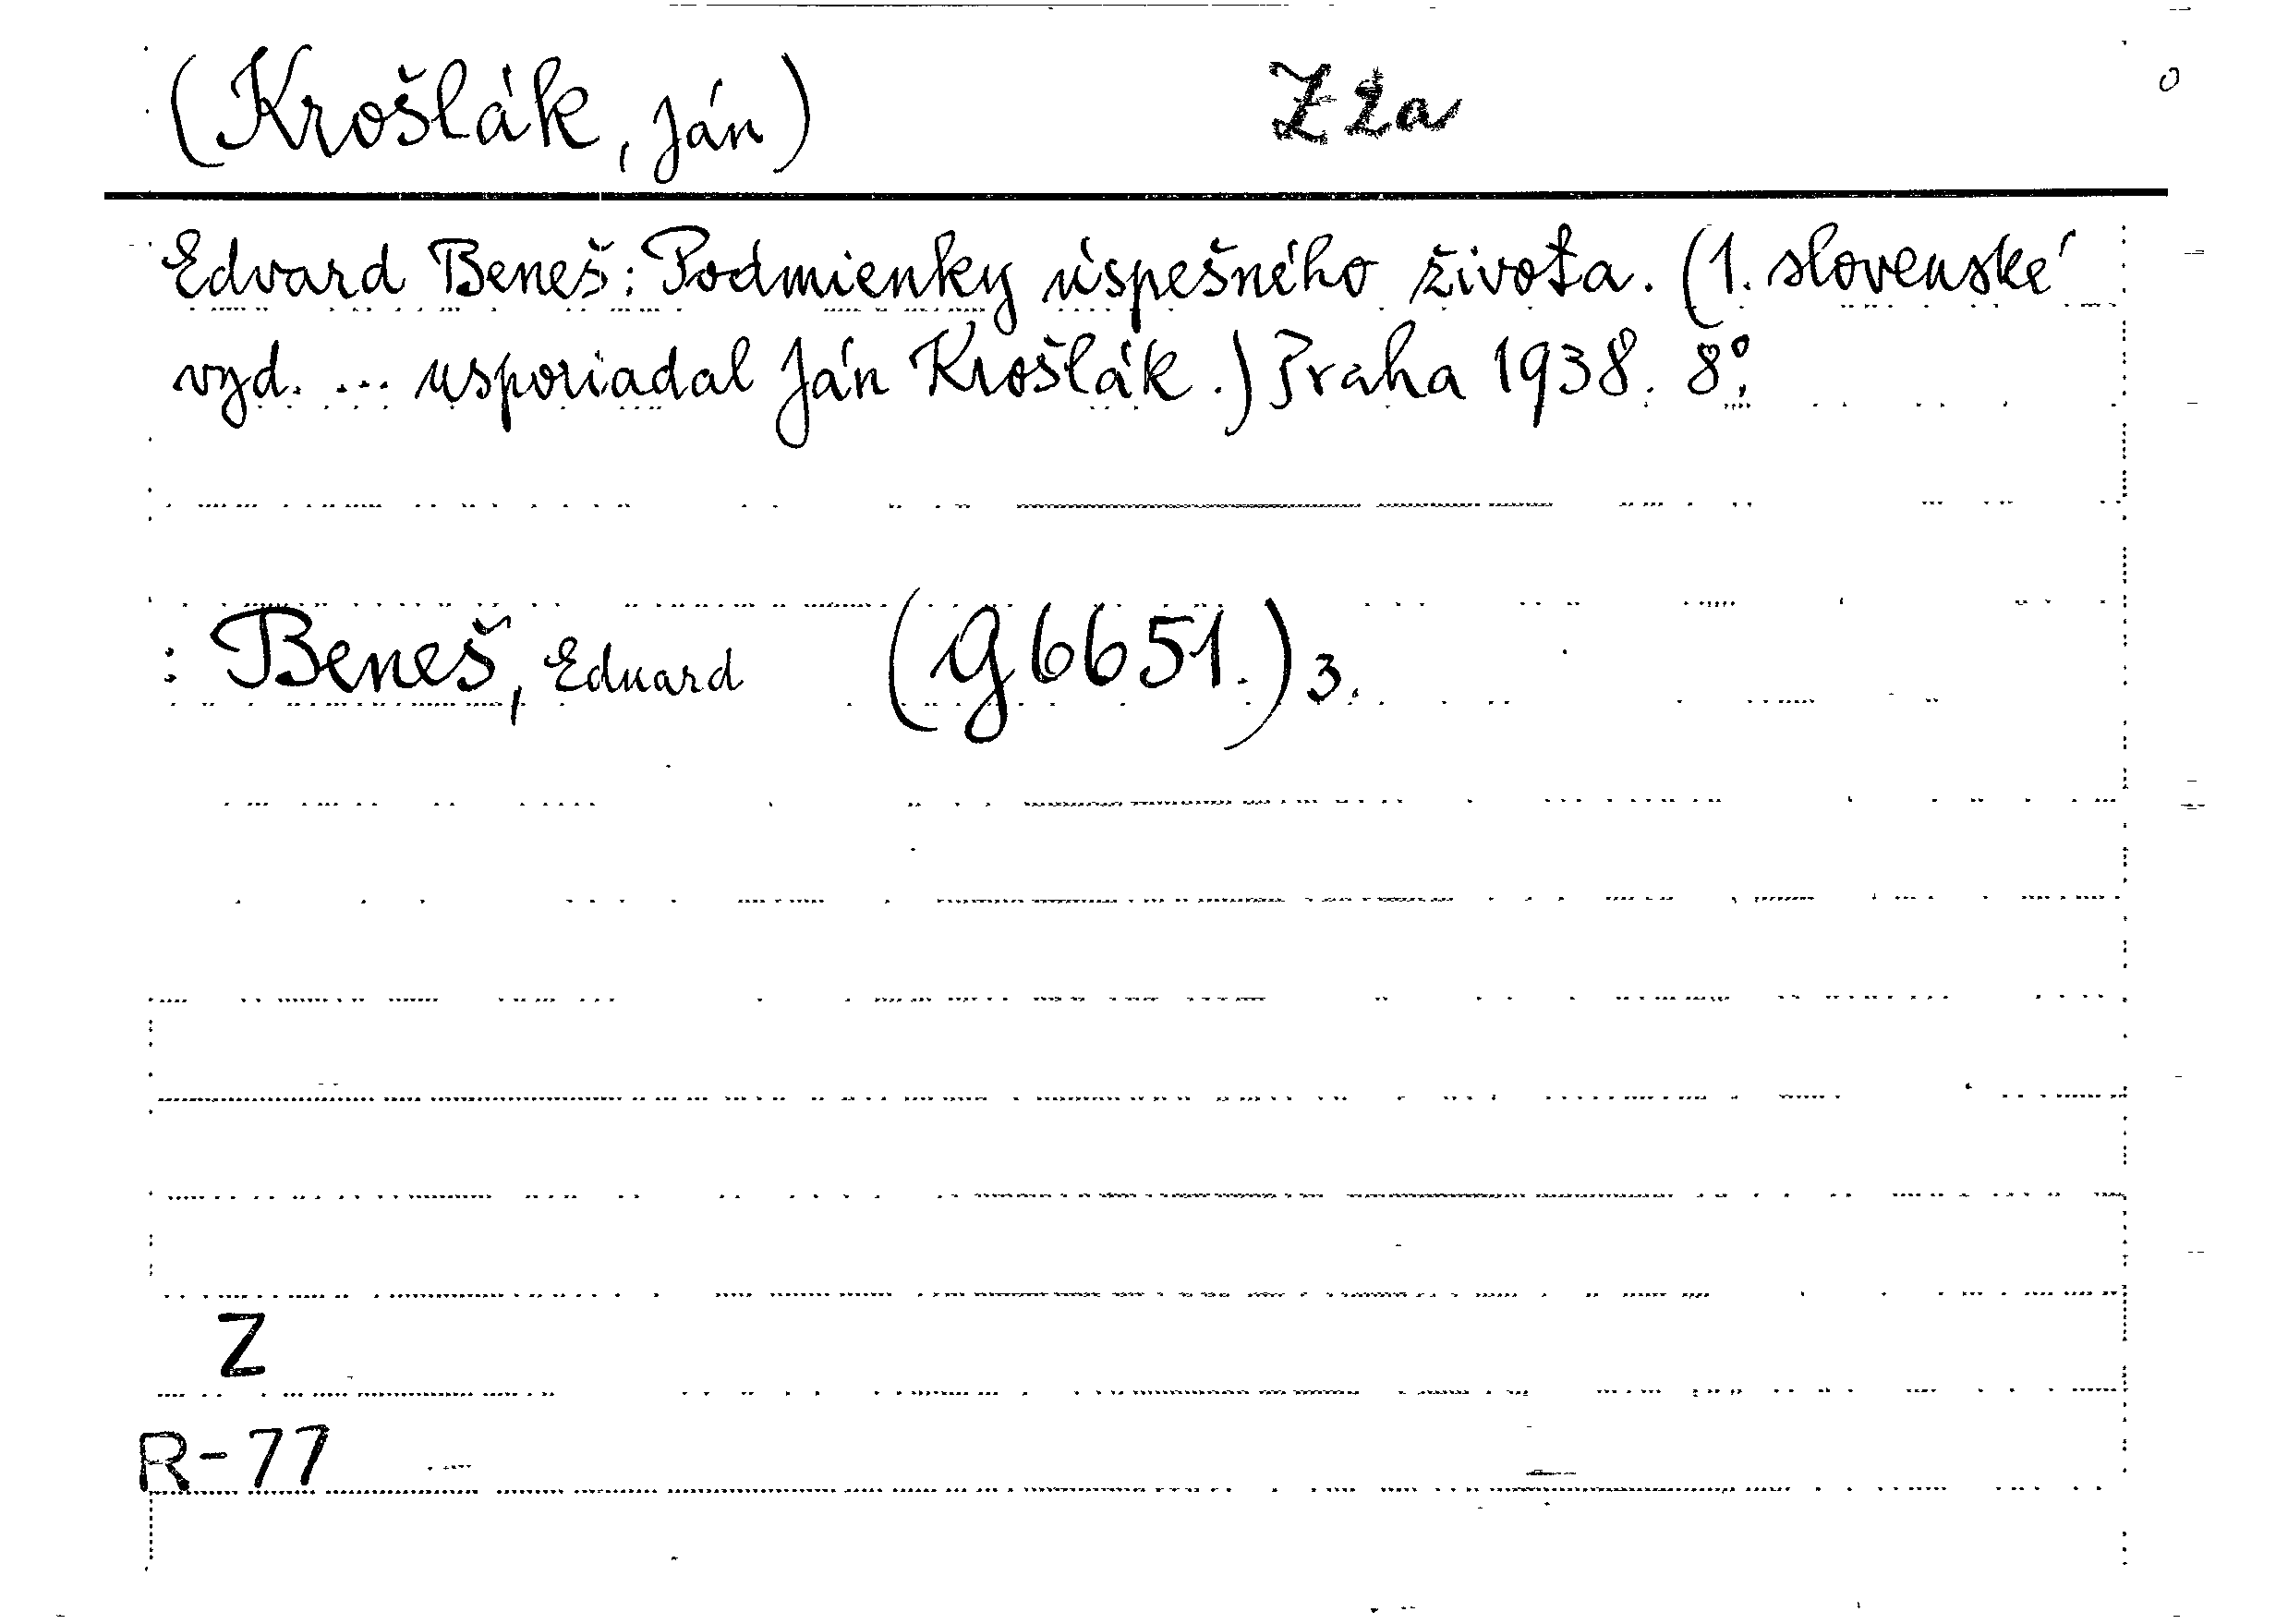 (Krošlák, Ján) Z 2a
Edvard Beneš: Podmienky úspešného života. (1. slovenské
vyd. ... usporiadal Ján Krošlák.) Praha 1938. 8°.
: Beneš, Eduard (G 6651.) 3.
Z
R-77